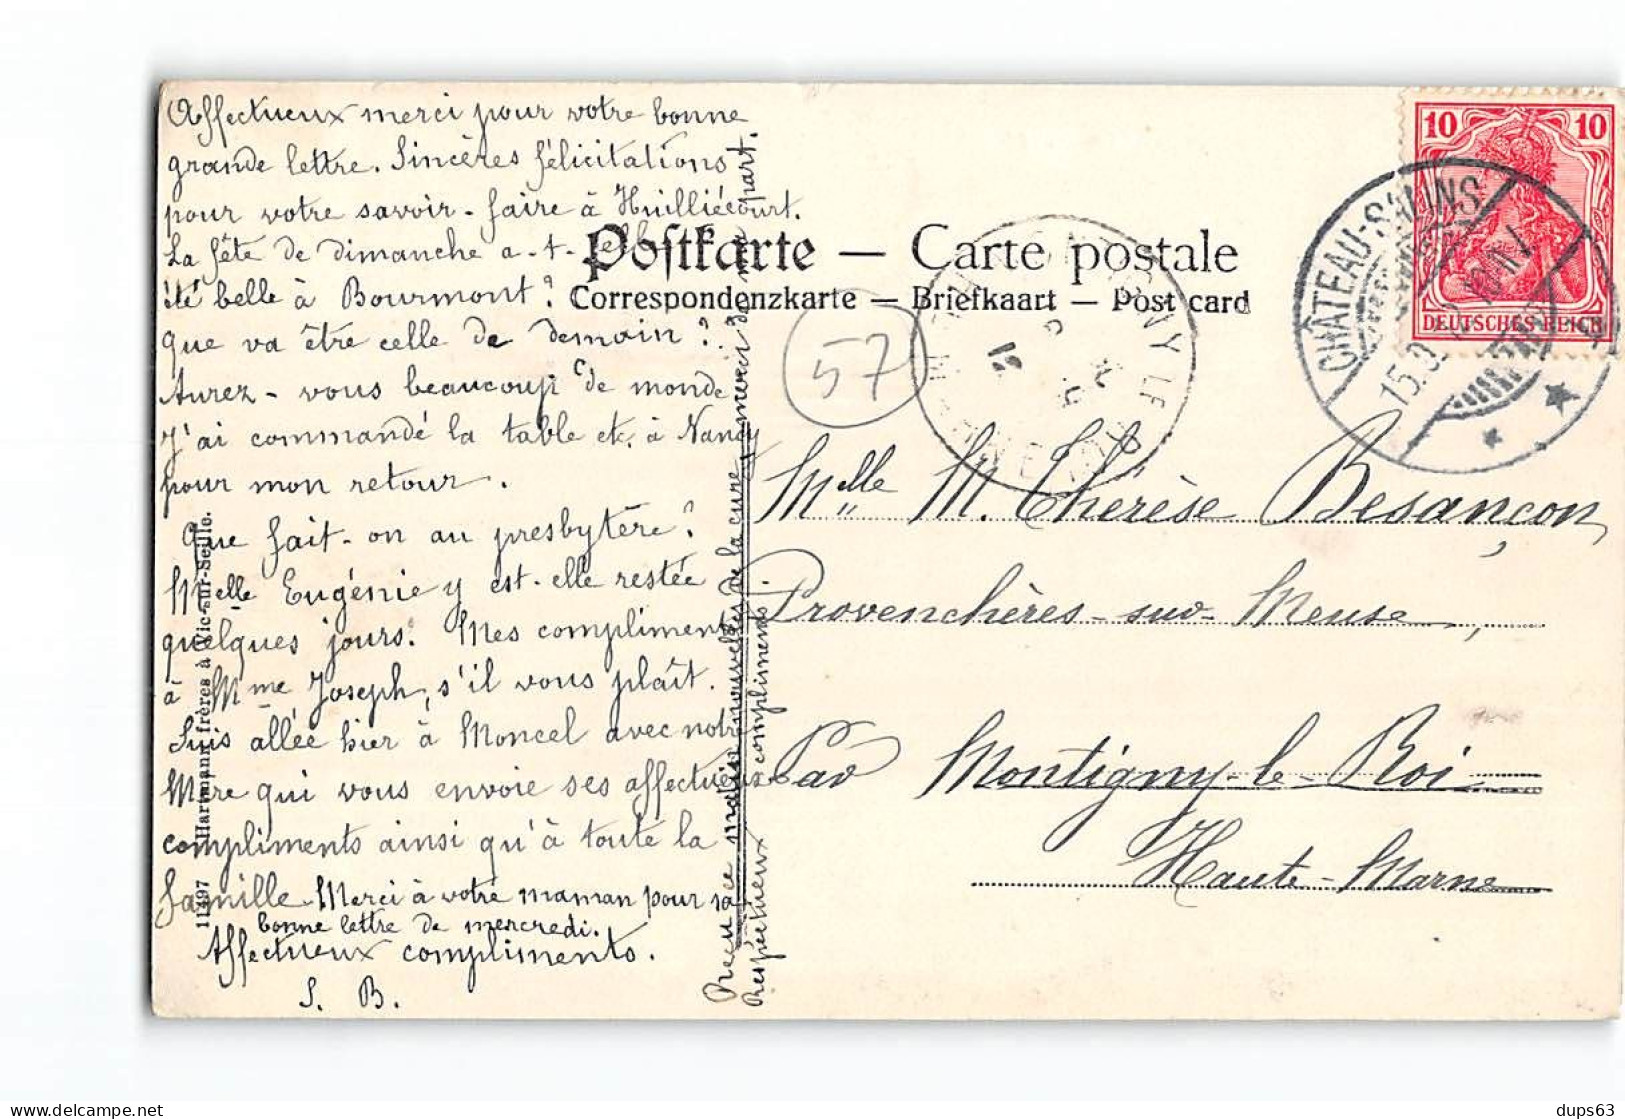 Affectueux merci pour votre bonne
grande lettre. Sincères félicitations
pour votre savoir-faire à Huilliécourt.
La fête de dimanche a-t-elle
été belle à Bourmont?
que va être celle de demain?
Aurez-vous beaucoup de monde
J'ai commandé la table etc. à Nancy
pour mon retour.
Que fait-on au presbytère?
Melle Eugénie y est-elle restée
quelques jours? Mes compliments
à Mme Joseph, s'il vous plaît.
Suis allée hier à Moncel avec notre
Mère qui vous envoie ses affectueux
compliments ainsi qu'à toute la
famille. Merci à votre maman pour sa
bonne lettre de mercredi.
Affectueux compliments.
S. B.
Reçu ce matin nouvelles de la cure, merci de ma part.
Respectueux compliments
11497 Hartmann frères à Vic-sur-Seille.
Postkarte — Carte postale
Correspondenzkarte — Briefkaart — Post card
57
10 10
DEUTSCHES REICH
CHÂTEAU-SALINS
Melle M. Thérèse Besançon,
Provenchères-sur-Meuse,
Par Montigny-le-Roi
Haute-Marne
dups63